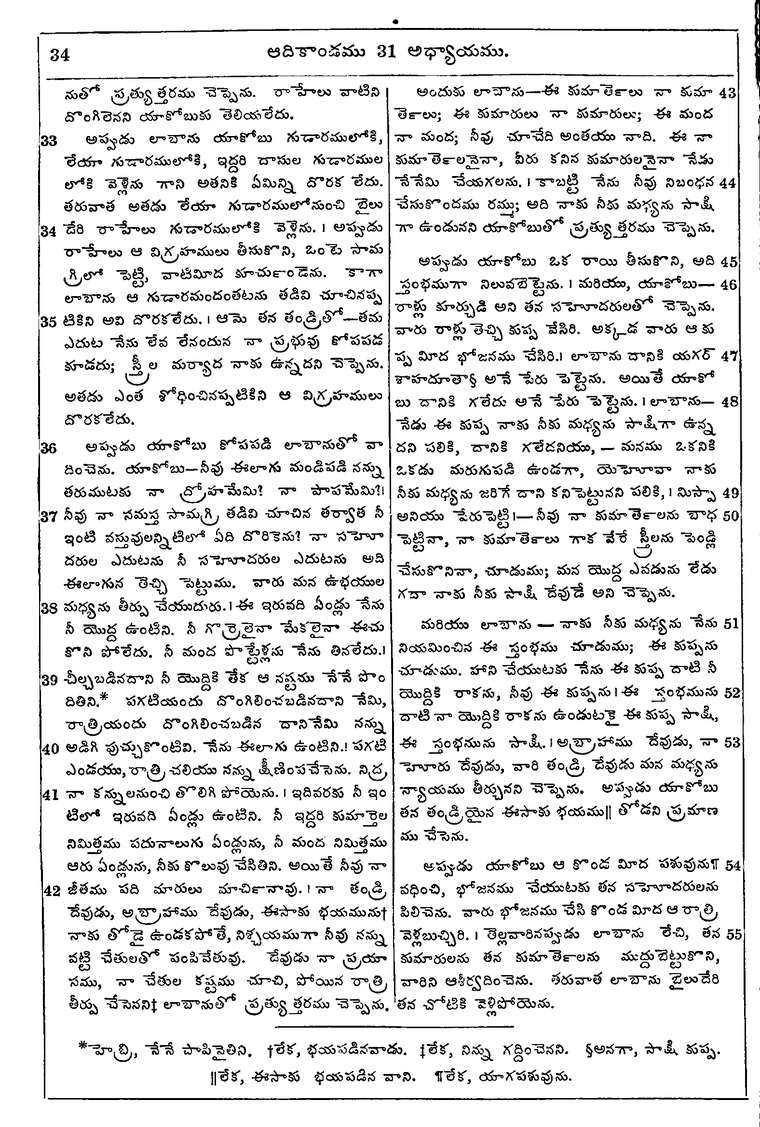 34
ఆదికాండము 31 అధ్యాయము.
నుతో ప్రత్యుత్తరము చెప్పెను. రాహేలు వాటిని
దొంగిలెనని యాకోబుకు తెలియలేదు.
33 అప్పుడు లాబాను యాకోబు గుడారములోకి,
లేయా గుడారములోకి, ఇద్దరి దాసుల గుడారముల
లోకి వెళ్లెను గాని అతనికి ఏమిన్ని దొరక లేదు.
తరువాత అతడు లేయా గుడారములోనుంచి బైలు
34 దేరి రాహేలు గుడారములోకి వెళ్లెను. । అప్పుడు
రాహేలు ఆ విగ్రహములు తీసుకొని, ఒంటె సామ
గ్రిలో పెట్టి, వాటిమీద కూచుండెను. కాగా
లాబాను ఆ గుడారమందంతటను తడివి చూచినప్ప
35 టికిని అవి దొరకలేదు. । ఆమె తన తండ్రితో—తమ
ఎదుట నేను లేవ లేనందున నా ప్రభువు కోపపడ
కూడదు; స్త్రీల మర్యాద నాకు ఉన్నదని చెప్పెను.
అతడు ఎంత శోధించినప్పటికిని ఆ విగ్రహములు
దొరకలేదు.
36 అప్పుడు యాకోబు కోపపడి లాబానుతో వా
దించెను. యాకోబు—నీవు ఈలాగు మండిపడి నన్ను
తరుముటకు నా ద్రోహమేమి? నా పాపమేమి?।
37 నీవు నా సమస్త సామగ్రి తడివి చూచిన తర్వాత నీ
ఇంటి వస్తువులన్నిటిలో ఏది దొరికెను? నా సహో
దరుల ఎదుటను నీ సహోదరుల ఎదుటను అది
ఈలాగున తెచ్చి పెట్టుము. వారు మన ఉభయుల
38 మధ్యను తీర్పు చేయుదురు. । ఈ ఇరువది ఏండ్లు నేను
నీ యొద్ద ఉంటిని. నీ గొర్రెలైనా మేకలైనా ఈచు
కొని పోలేదు. నీ మంద పొట్టేళ్లను నేను తినలేదు.।
39 చీల్చబడినదాని నీ యొద్దికి తేక ఆ నష్టము నేనే పొం
దితిని.* పగటియందు దొంగిలించబడినదాని నేమి,
రాత్రియందు దొంగిలించబడిన దానినేమి నన్ను
40 అడిగి పుచ్చుకొంటివి. నేను ఈలాగు ఉంటిని.। పగటి
ఎండయు, రాత్రి చలియు నన్ను క్షీణింపచేసెను. నిద్ర
41 నా కన్నులనుంచి తొలిగి పోయెను. । ఇదివరకు నీ ఇం
టిలో ఇరువది ఏండ్లు ఉంటిని. నీ ఇద్దరి కుమార్తెల
నిమిత్తము పదునాలుగు ఏండ్లును, నీ మంద నిమిత్తము
ఆరు ఏండ్లును, నీకు కొలువు చేసితిని. అయితే నీవు నా
42 జీతము పది మారులు మార్చినావు. । నా తండ్రి
దేవుడు, అబ్రాహాము దేవుడు, ఈసాకు భయమును†
నాకు తోడై ఉండకపోతే, నిశ్చయముగా నీవు నన్ను
వట్టి చేతులతో పంపివేతువు. దేవుడు నా ప్రయా
సము, నా చేతుల కష్టము చూచి, పోయిన రాత్రి
తీర్పు చేసెనని‡ లాబానుతో ప్రత్యుత్తరము చెప్పెను.
అందుకు లాబాను—ఈ కుమార్తెలు నా కుమా 43
ర్తెలు; ఈ కుమారులు నా కుమారులు; ఈ మంద
నా మంద; నీవు చూచేది అంతయు నాది. ఈ నా
కుమార్తెలనైనా, వీరు కనిన కుమారులనైనా నేడు
నేనేమి చేయగలను. । కాబట్టి నేను నీవు నిబంధన 44
చేసుకొందము రమ్ము; అది నాకు నీకు మధ్యను సాక్షి
గా ఉండునని యాకోబుతో ప్రత్యుత్తరము చెప్పెను.
అప్పుడు యాకోబు ఒక రాయి తీసుకొని, అది 45
స్తంభముగా నిలువబెట్టెను. । మరియు, యాకోబు— 46
రాళ్లు కూర్చుడి అని తన సహోదరులతో చెప్పెను.
వారు రాళ్లు తెచ్చి కుప్ప వేసిరి. అక్కడ వారు ఆ కు
ప్ప మీద భోజనము చేసిరి.। లాబాను దానికి యగర్ 47
శాహదూతా§ అనే పేరు పెట్టెను. అయితే యాకో
బు దానికి గలేదు అనే పేరు పెట్టెను. । లాబాను— 48
నేడు ఈ కుప్ప నాకు నీకు మధ్యను సాక్షిగా ఉన్న
దని పలికి, దానికి గలేదనియు, — మనము ఒకనికి
ఒకడు మరుగుపడి ఉండగా, యెహోవా నాకు
నీకు మధ్యను జరిగే దాని కనిపెట్టునని పలికి, । మిస్పా 49
అనియు పేరుపెట్టి।— నీవు నా కుమార్తెలను బాధ 50
పెట్టినా, నా కుమార్తెలు గాక వేరే స్త్రీలను పెండ్లి
చేసుకొనినా, చూడుము; మన యొద్ద ఎవడును లేడు
గదా నాకు నీకు సాక్షి దేవుడే అని చెప్పెను.
మరియు లాబాను — నాకు నీకు మధ్యను నేను 51
నియమించిన ఈ స్తంభము చూడుము; ఈ కుప్పను
చూడుము. హాని చేయుటకు నేను ఈ కుప్ప దాటి నీ
యొద్దికి రాకను, నీవు ఈ కుప్పను। ఈ స్తంభమును 52
దాటి నా యొద్దికి రాకను ఉండుటకై ఈ కుప్ప సాక్షి,
ఈ స్తంభమును సాక్షి. । అబ్రాహాము దేవుడు, నా 53
హోరు దేవుడు, వారి తండ్రి దేవుడు మన మధ్యను
న్యాయము తీర్చునని చెప్పెను. అప్పుడు యాకోబు
తన తండ్రియైన ఈసాకు భయము॥ తోడని ప్రమాణ
ము చేసెను.
అప్పుడు యాకోబు ఆ కొండ మీద పశువును¶ 54
వధించి, భోజనము చేయుటకు తన సహోదరులను
పిలిచెను. వారు భోజనము చేసి కొండ మీద ఆ రాత్రి
వెళ్లబుచ్చిరి. । తెల్లవారినప్పుడు లాబాను లేచి, తన 55
కుమారులను తన కుమార్తెలను ముద్దుబెట్టుకొని,
వారిని ఆశీర్వదించెను. తరువాత లాబాను బైలుదేరి
తన చోటికి వెళ్లిపోయెను.
*హెబ్రి, నేనే పాపినైతిని. †లేక, భయపడినవాడు. ‡లేక, నిన్ను గద్దించెనని. §అనగా, సాక్షి కుప్ప.
॥లేక, ఈసాకు భయపడిన వాని. ¶లేక, యాగపశువును.